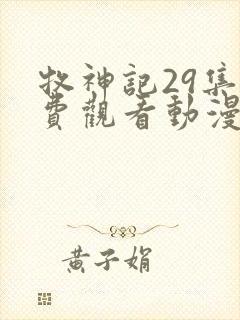 牧神記29集
費觀看動漫
黃子娟